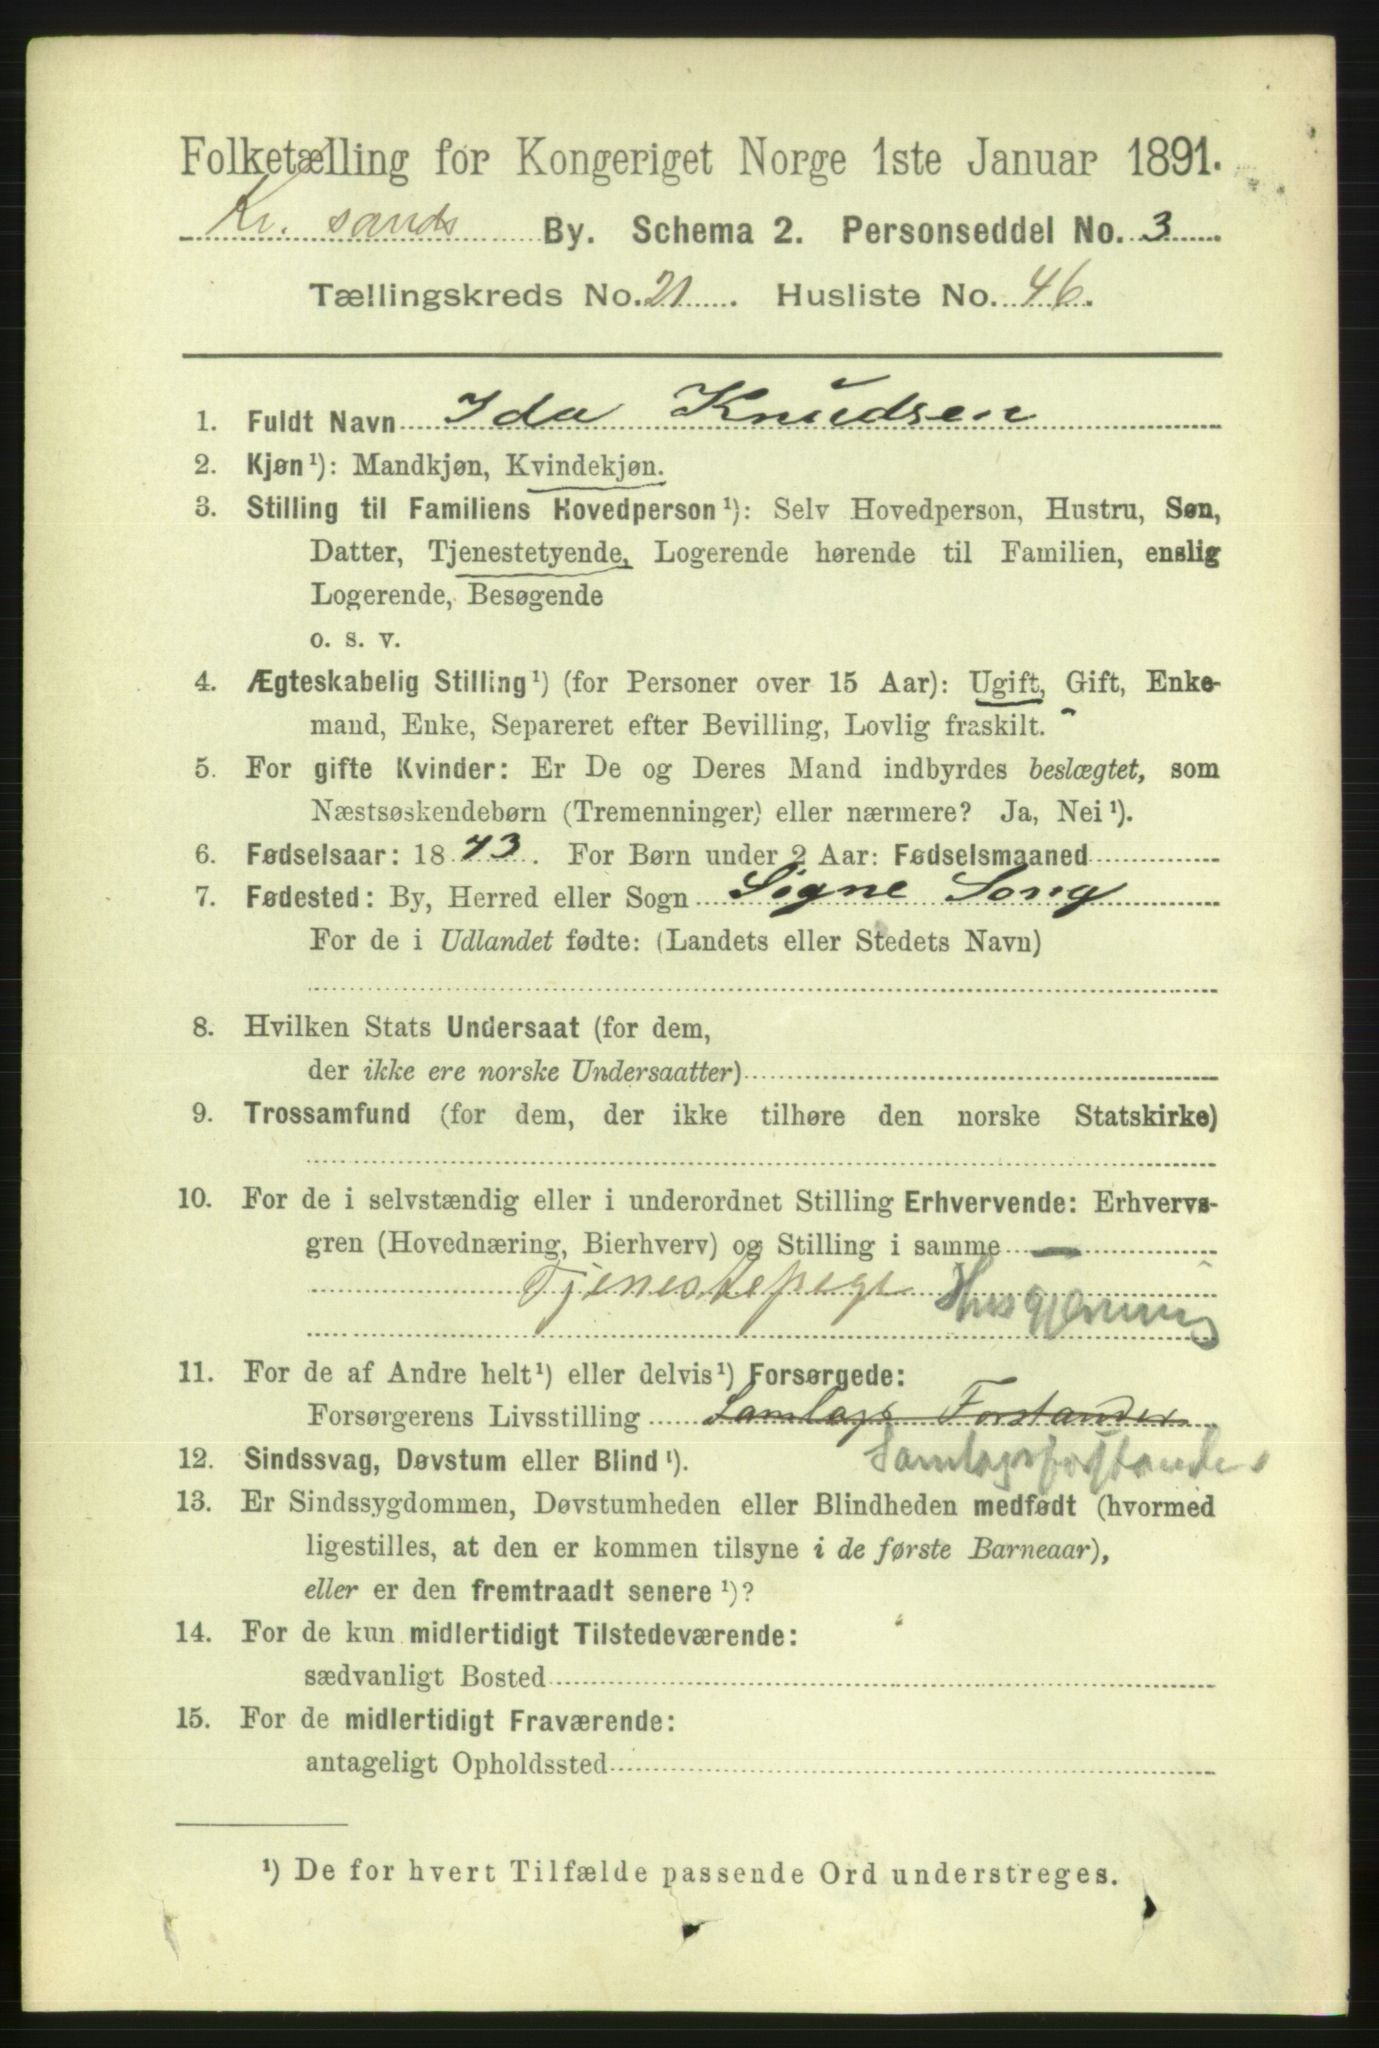 Folketælling for Kongeriget Norge 1ste Januar 1891.
Kr. sands By. Schema 2. Personseddel No. 3
Tællingskreds No. 21. Husliste No. 46.
1. Fuldt Navn Ida Knudsen
2. Kjøn¹): Mandkjøn, Kvindekjøn.
3. Stilling til Familiens Hovedperson¹): Selv Hovedperson, Hustru, Søn,
Datter, Tjenestetyende, Logerende hørende til Familien, enslig
Logerende, Besøgende
o. s. v.
4. Ægteskabelig Stilling¹) (for Personer over 15 Aar): Ugift, Gift, Enke-
mand, Enke, Separeret efter Bevilling, Lovlig fraskilt.
5. For gifte Kvinder: Er De og Deres Mand indbyrdes beslægtet, som
Næstsøskendebørn (Tremenninger) eller nærmere? Ja, Nei¹).
6. Fødselsaar: 1873. For Børn under 2 Aar: Fødselsmaaned
7. Fødested: By, Herred eller Sogn Sogne Song
For de i Udlandet fødte: (Landets eller Stedets Navn)
8. Hvilken Stats Undersaat (for dem,
der ikke ere norske Undersaatter)
9. Trossamfund (for dem, der ikke tilhøre den norske Statskirke)
10. For de i selvstændig eller i underordnet Stilling Erhvervende: Erhvervs-
gren (Hovednæring, Bierhverv) og Stilling i samme —
Tjenestepige Husgjerning
11. For de af Andre helt¹) eller delvis¹) Forsørgede:
Forsørgerens Livsstilling Samlags Forstander
12. Sindssvag, Døvstum eller Blind¹). Samlagsforstander
13. Er Sindssygdommen, Døvstumheden eller Blindheden medfødt (hvormed
ligestilles, at den er kommen tilsyne i de første Barneaar),
eller er den fremtraadt senere¹)?
14. For de kun midlertidigt Tilstedeværende:
sædvanligt Bosted
15. For de midlertidigt Fraværende:
antageligt Opholdssted
¹) De for hvert Tilfælde passende Ord understreges.